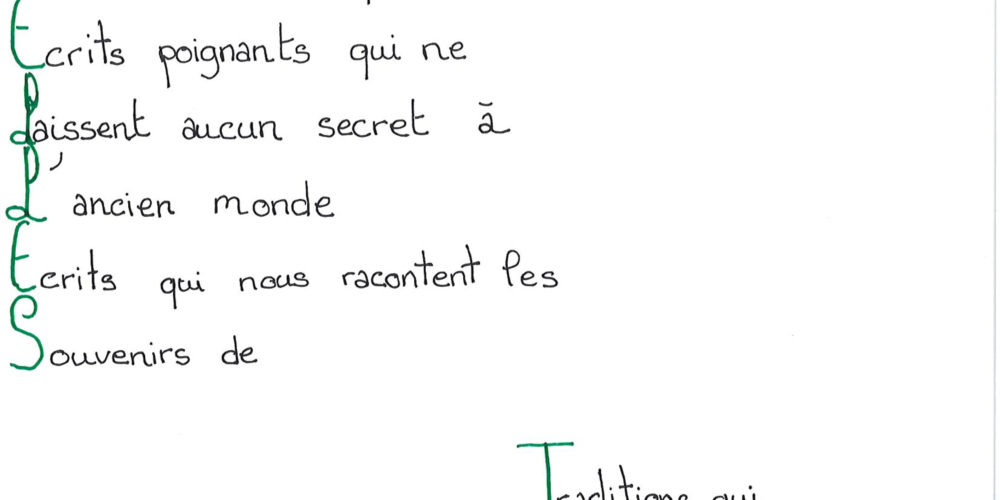 Ecrits poignants qui ne
Laissent aucun secret à
L'ancien monde
Ecrits qui nous racontent les
Souvenirs de
Traditions qui